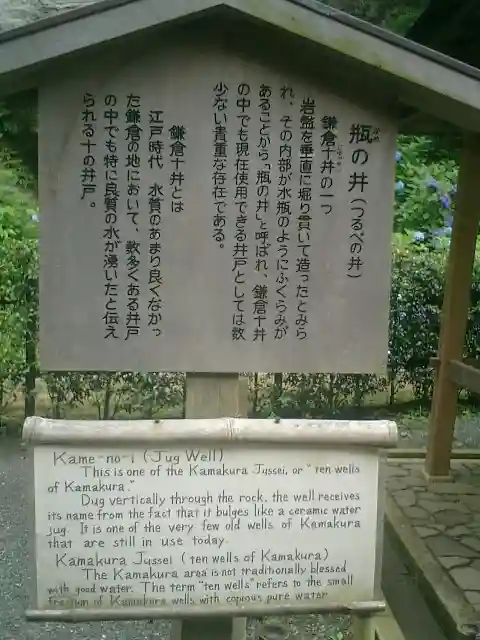 瓶の井（つるべの井）
かめ
鎌倉十井の一つ
じゅっせい
岩盤を垂直に堀り貫いて造ったとみら
れ、その内部が水瓶のようにふくらみが
あることから「瓶の井」と呼ばれ、鎌倉十井
の中でも現在使用できる井戸としては数
少ない貴重な存在である。
鎌倉十井とは
江戸時代 水質のあまり良くなかっ
た鎌倉の地において、数多くある井戸
の中でも特に良質の水が湧いたと伝え
られる十の井戸。
Kame-no-i (Jug Well)
This is one of the Kamakura Jussei, or "ten wells
of Kamakura."
Dug vertically through the rock, the well receives
its name from the fact that it bulges like a ceramic water
jug. It is one of the very few old wells of Kamakura
that are still in use today.
Kamakura Jussei (ten wells of Kamakura)
The Kamakura area is not traditionally blessed
with good water. The term "ten wells" refers to the small
fraction of Kamakura wells with copious pure water